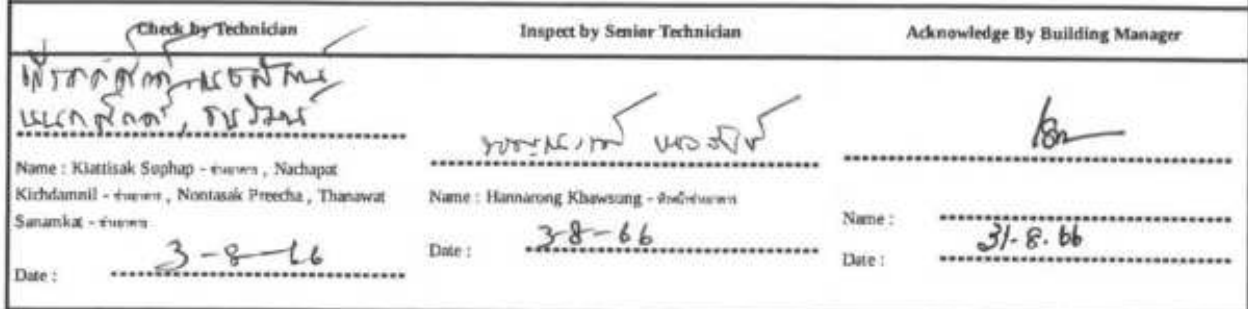 Check by Technician
Inspect by Senior Technician
Acknowledge By Building Manager
Name : Kiattisak Suphap - ช่างอาคาร , Nachapat
Kichdamnil - ช่างอาคาร , Nontasak Preecha , Thanawat
Sanamkat - ช่างอาคาร
Date : 3-8-66
Name : Hannarong Khawsung - หัวหน้าช่างอาคาร
Date : 3-8-66
Name :
Date : 31-8-66